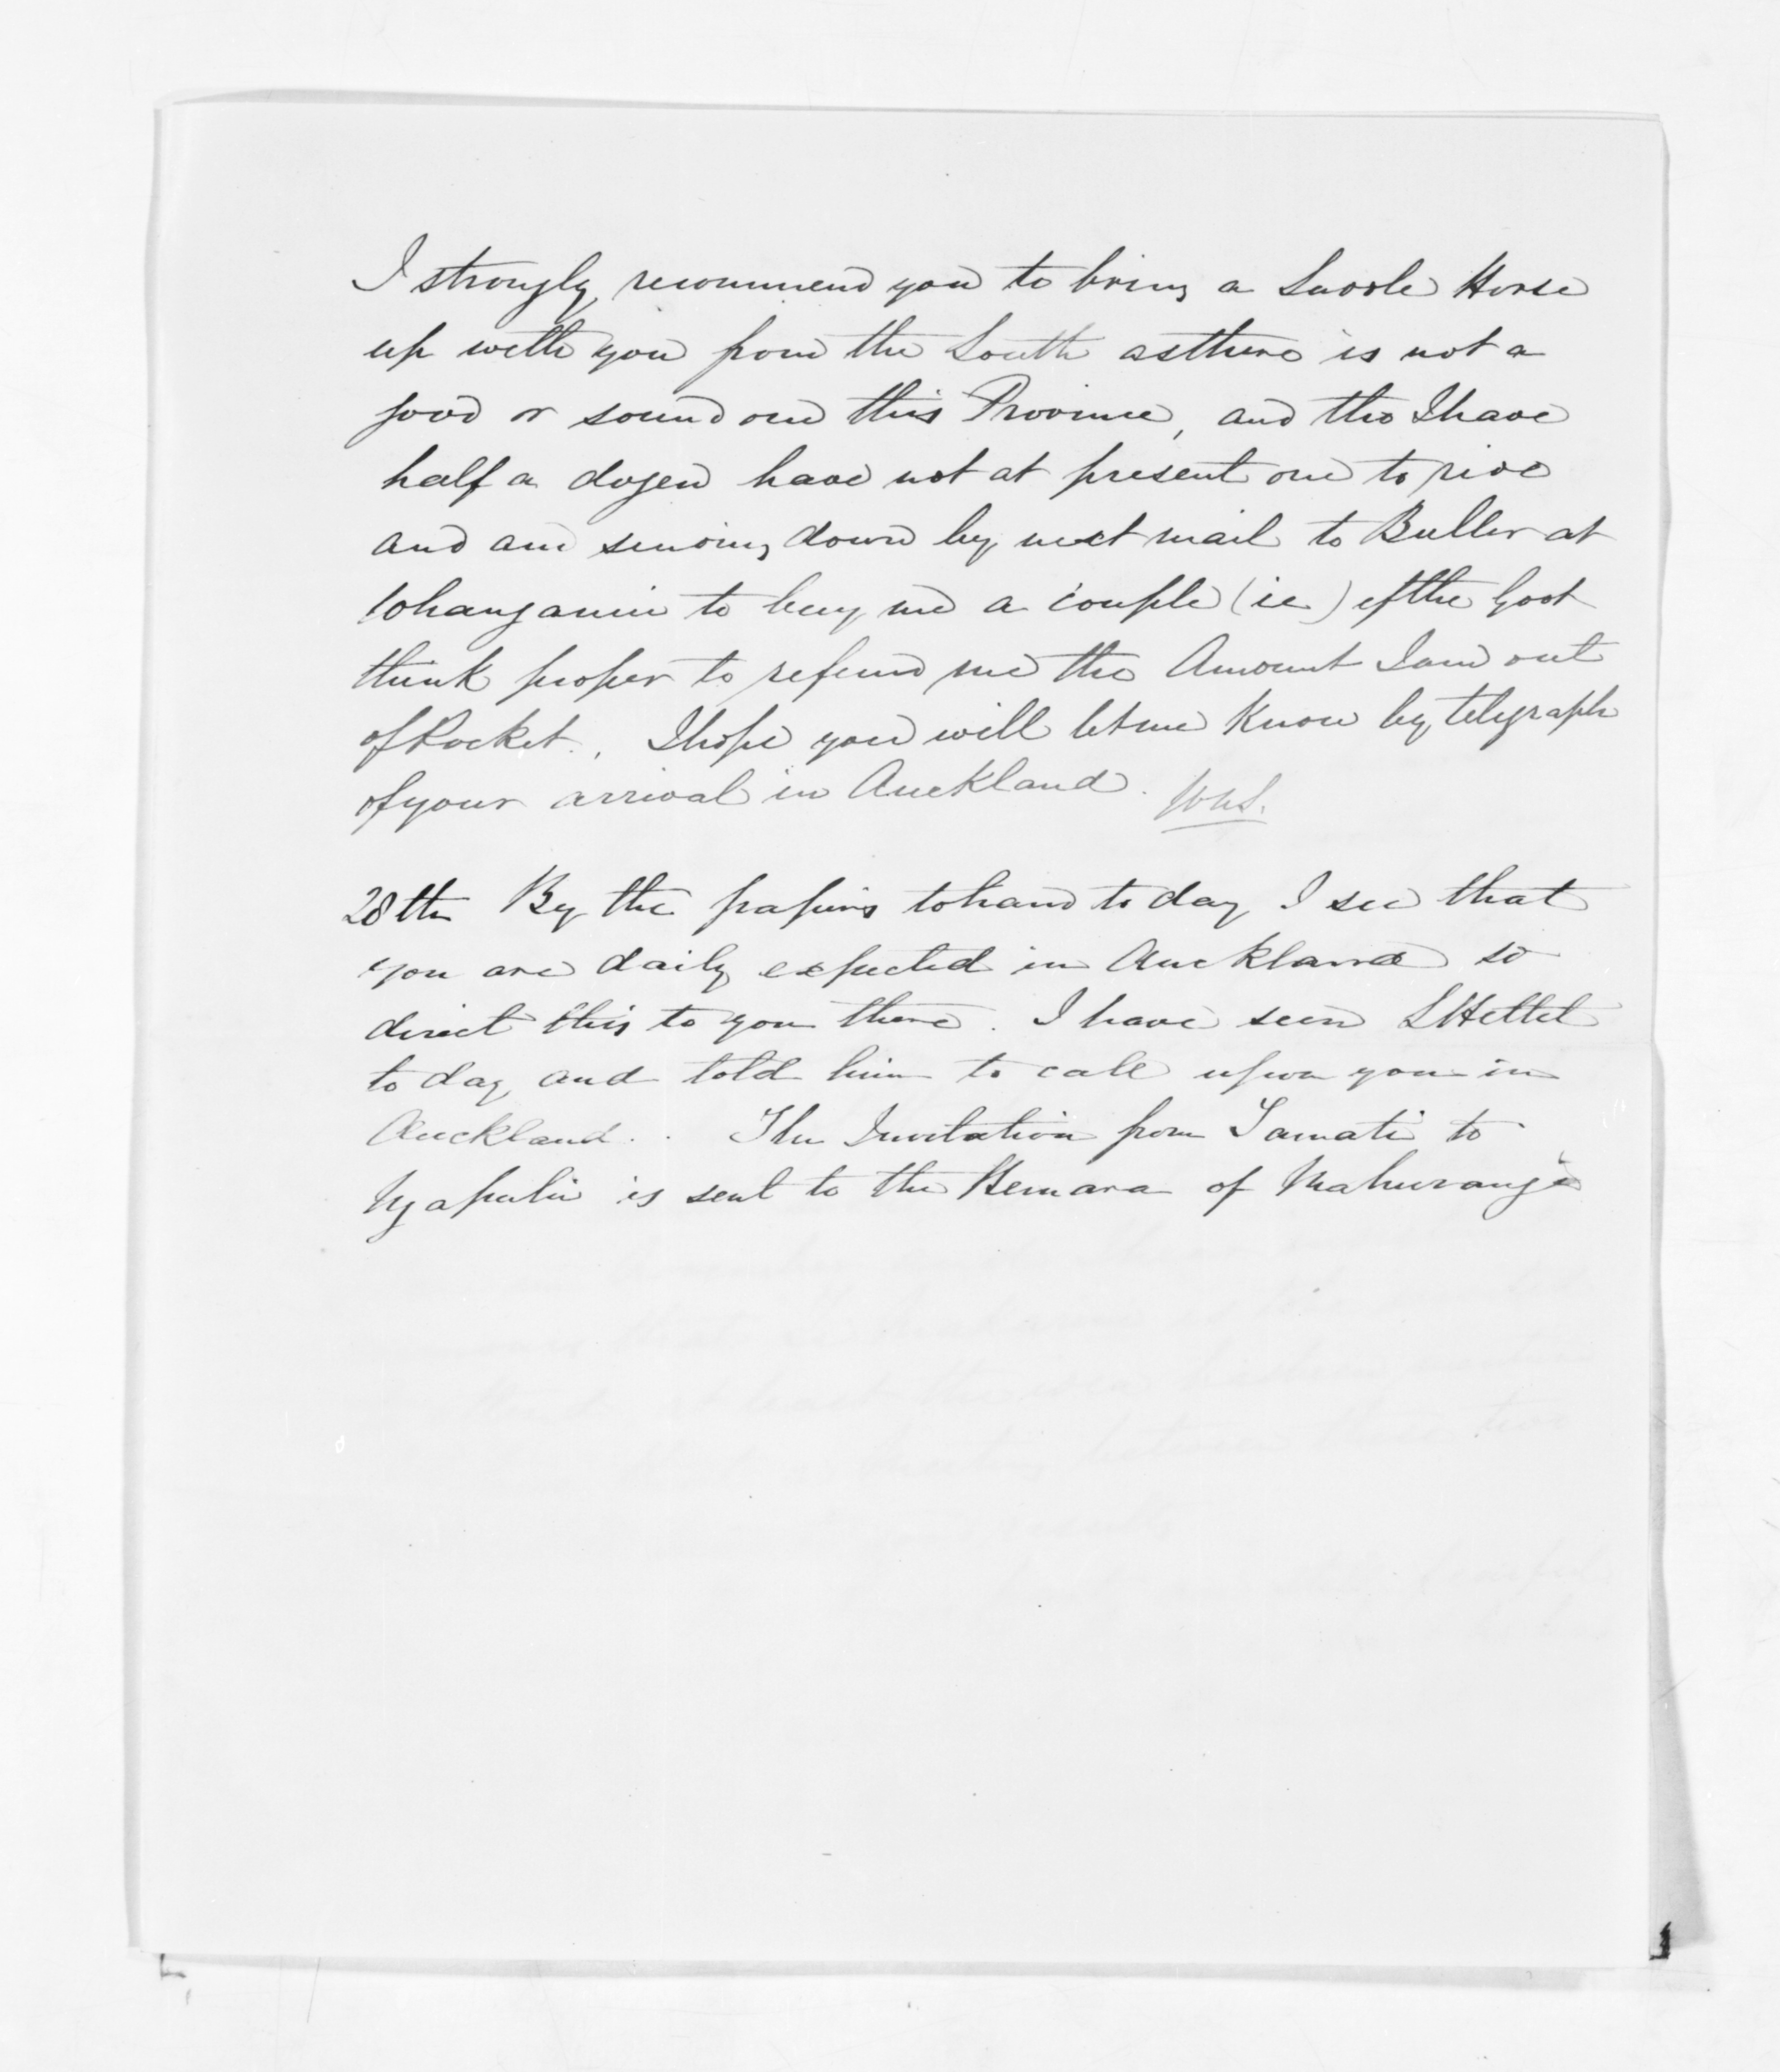 I strongly recommend you to bring a Saddle Horse
up with you from the South as there is not a
good or sound one this Province, and tho I have
half a dozen have not at present one to ride
and am sending down by next mail to Buller at
Whanganui to buy me a couple (ie) if the Govt
think proper to refund me the Amount I am out
of Pocket. I hope you will let me know by telegraph
of your arrival in Auckland. WNS.
28th By the papers to hand to day I see that
you are daily expected in Auckland so
direct this to you there. I have seen L Hettet
to day and told him to call upon you in
Auckland. The Invitation from Tamati to
Ngapuhi is sent to the Kemara of Mahurangi